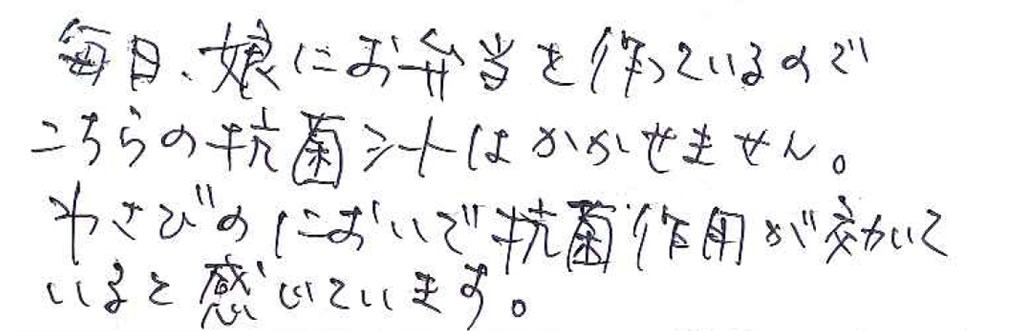 毎日、娘にお弁当を作っているので
こちらの抗菌シートはかかせません。
わさびのにおいで抗菌作用が効いて
いると感じています。